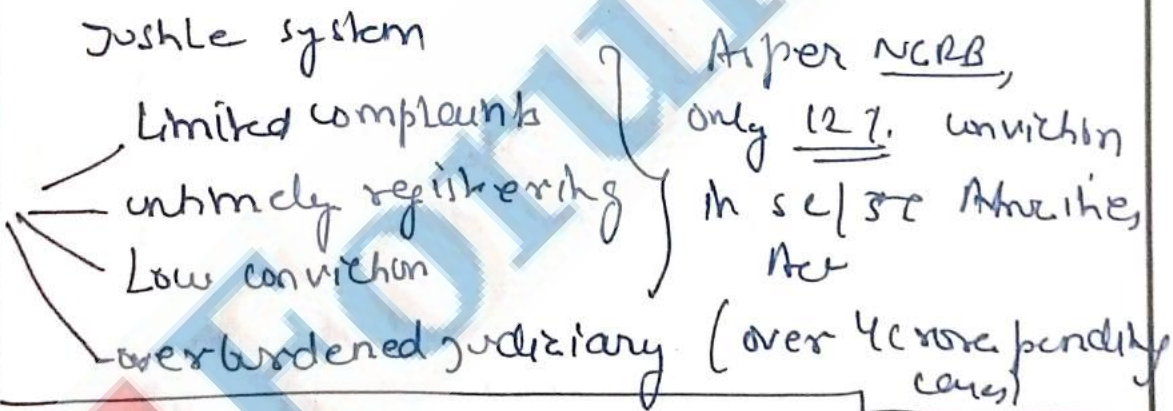 Justice system
Limited complaints
untimely registering
Low conviction
overburdened judiciary (over 4 crore pending cases)
As per NCRB,
only 12%. conviction
in SC/ST Atrocities
Act
Forum